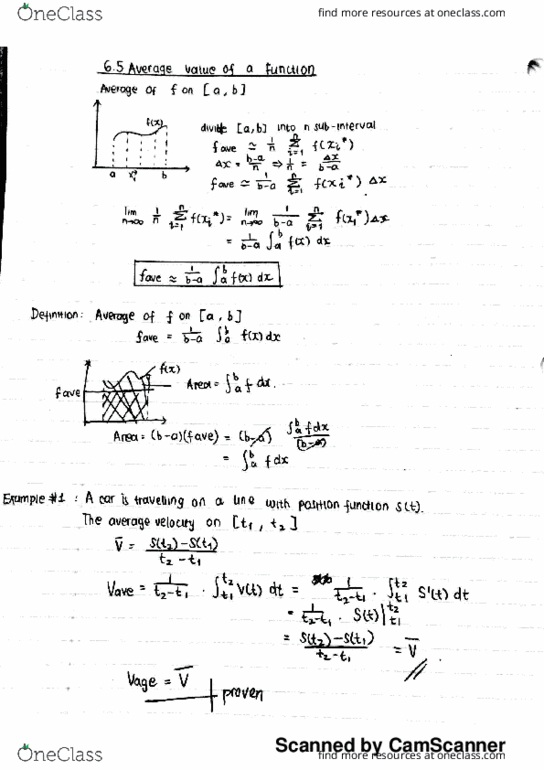 OneClass
find more resources at oneclass.com
6.5 Average value of a function
Average of f on [a, b]
f(x)
a x₁* b
divide [a,b] into n sub-interval
fave ≃ 1/n Σ_{i=1}^{n} f(xᵢ*)
Δx = (b-a)/n ⇒ 1/n = Δx/(b-a)
fave ≃ 1/(b-a) Σ_{i=1}^{n} f(xᵢ*) Δx
lim_{n→∞} 1/n Σ_{i=1}^{n} f(xᵢ*) = lim_{n→∞} 1/(b-a) Σ_{i=1}^{n} f(xᵢ*) Δx
= 1/(b-a) ∫_a^b f(x) dx
fave ≃ 1/(b-a) ∫_a^b f(x) dx
Definition: Average of f on [a, b]
fave = 1/(b-a) ∫_a^b f(x) dx
f(x)
fave
Area = ∫_a^b f dx.
Area = (b-a)(fave) = (b-a) ∫_a^b f dx/(b-a)
= ∫_a^b f dx
Example #1 : A car is travelling on a line with position function s(t).
The average velocity on [t₁, t₂]
V̅ = (s(t₂)-s(t₁))/(t₂-t₁)
Vave = 1/(t₂-t₁) · ∫_{t₁}^{t₂} V(t) dt = 1/(t₂-t₁) · ∫_{t₁}^{t₂} S'(t) dt
= 1/(t₂-t₁) · S(t)|_{t₁}^{t₂}
= (s(t₂)-s(t₁))/(t₂-t₁) = V̅
Vage = V̅
proven
Scanned by CamScanner
OneClass
find more resources at oneclass.com